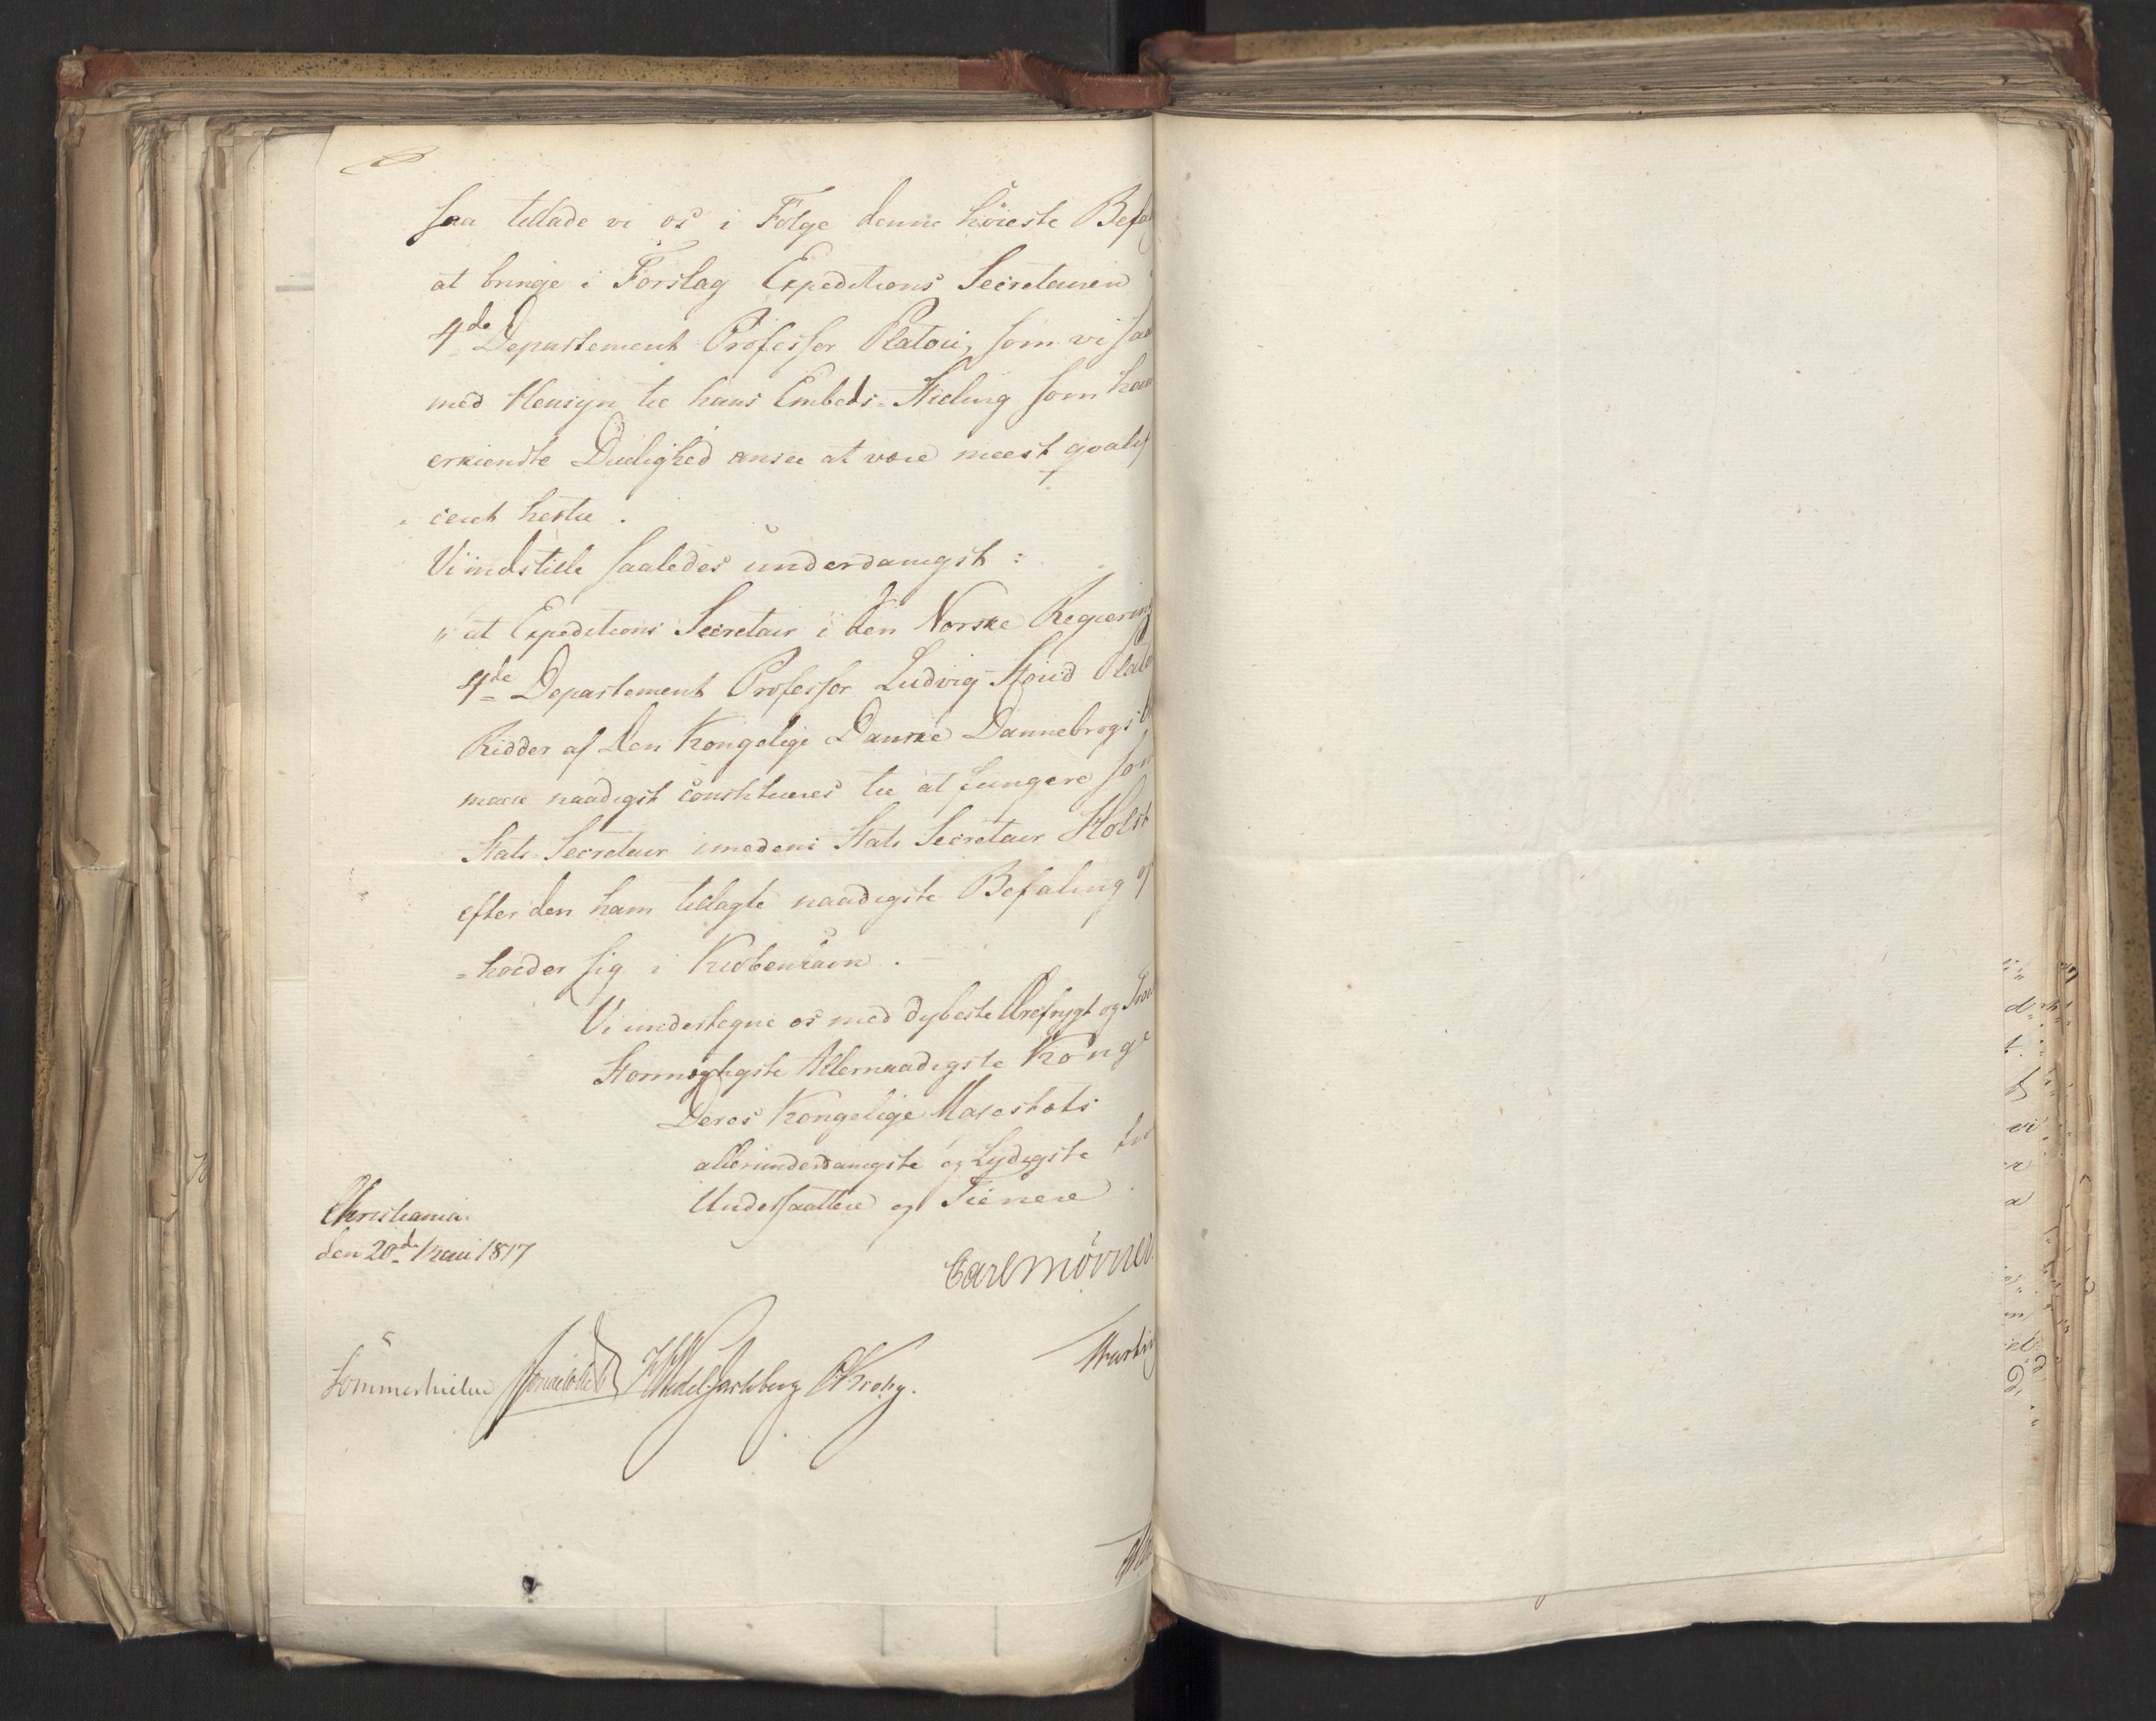 saa tillade vi os i Følge denne høieste Befa
at bringe i Forslag Expeditions Secretairen
4de Departement Professor Platou, som vi saa
med Hensyn til hans Embeds-Stilling som han
erkiendte Duelighed ansee at være meest qvalif
ceret hertil.
Vi indstille saaledes underdanigst:
"at Expeditions Secretair i den Norske Regierings
4de Departement Professor Ludvig Stoud Plato
Ridder af den Kongelige Danske Dannebrogs O
maa naadigst constitueres til at fungere som
Stats-Secretair imedens Stats Secretair Holst
efter den ham tillagte naadigste Befaling op
=holder sig i Kiøbenhavn.
Vi undertegne os med dybeste Ærefrygt og Tro
Stormægtigste Allernaadigste Konge
Deres Kongelige Majestæts
allerunderdanigste og Lydigste tro
Undersaattere og Tienere
Christiania
den 20de Mai 1817
Carl Mörner
Sommerhielm HWedel Jarlsberg Krohg.